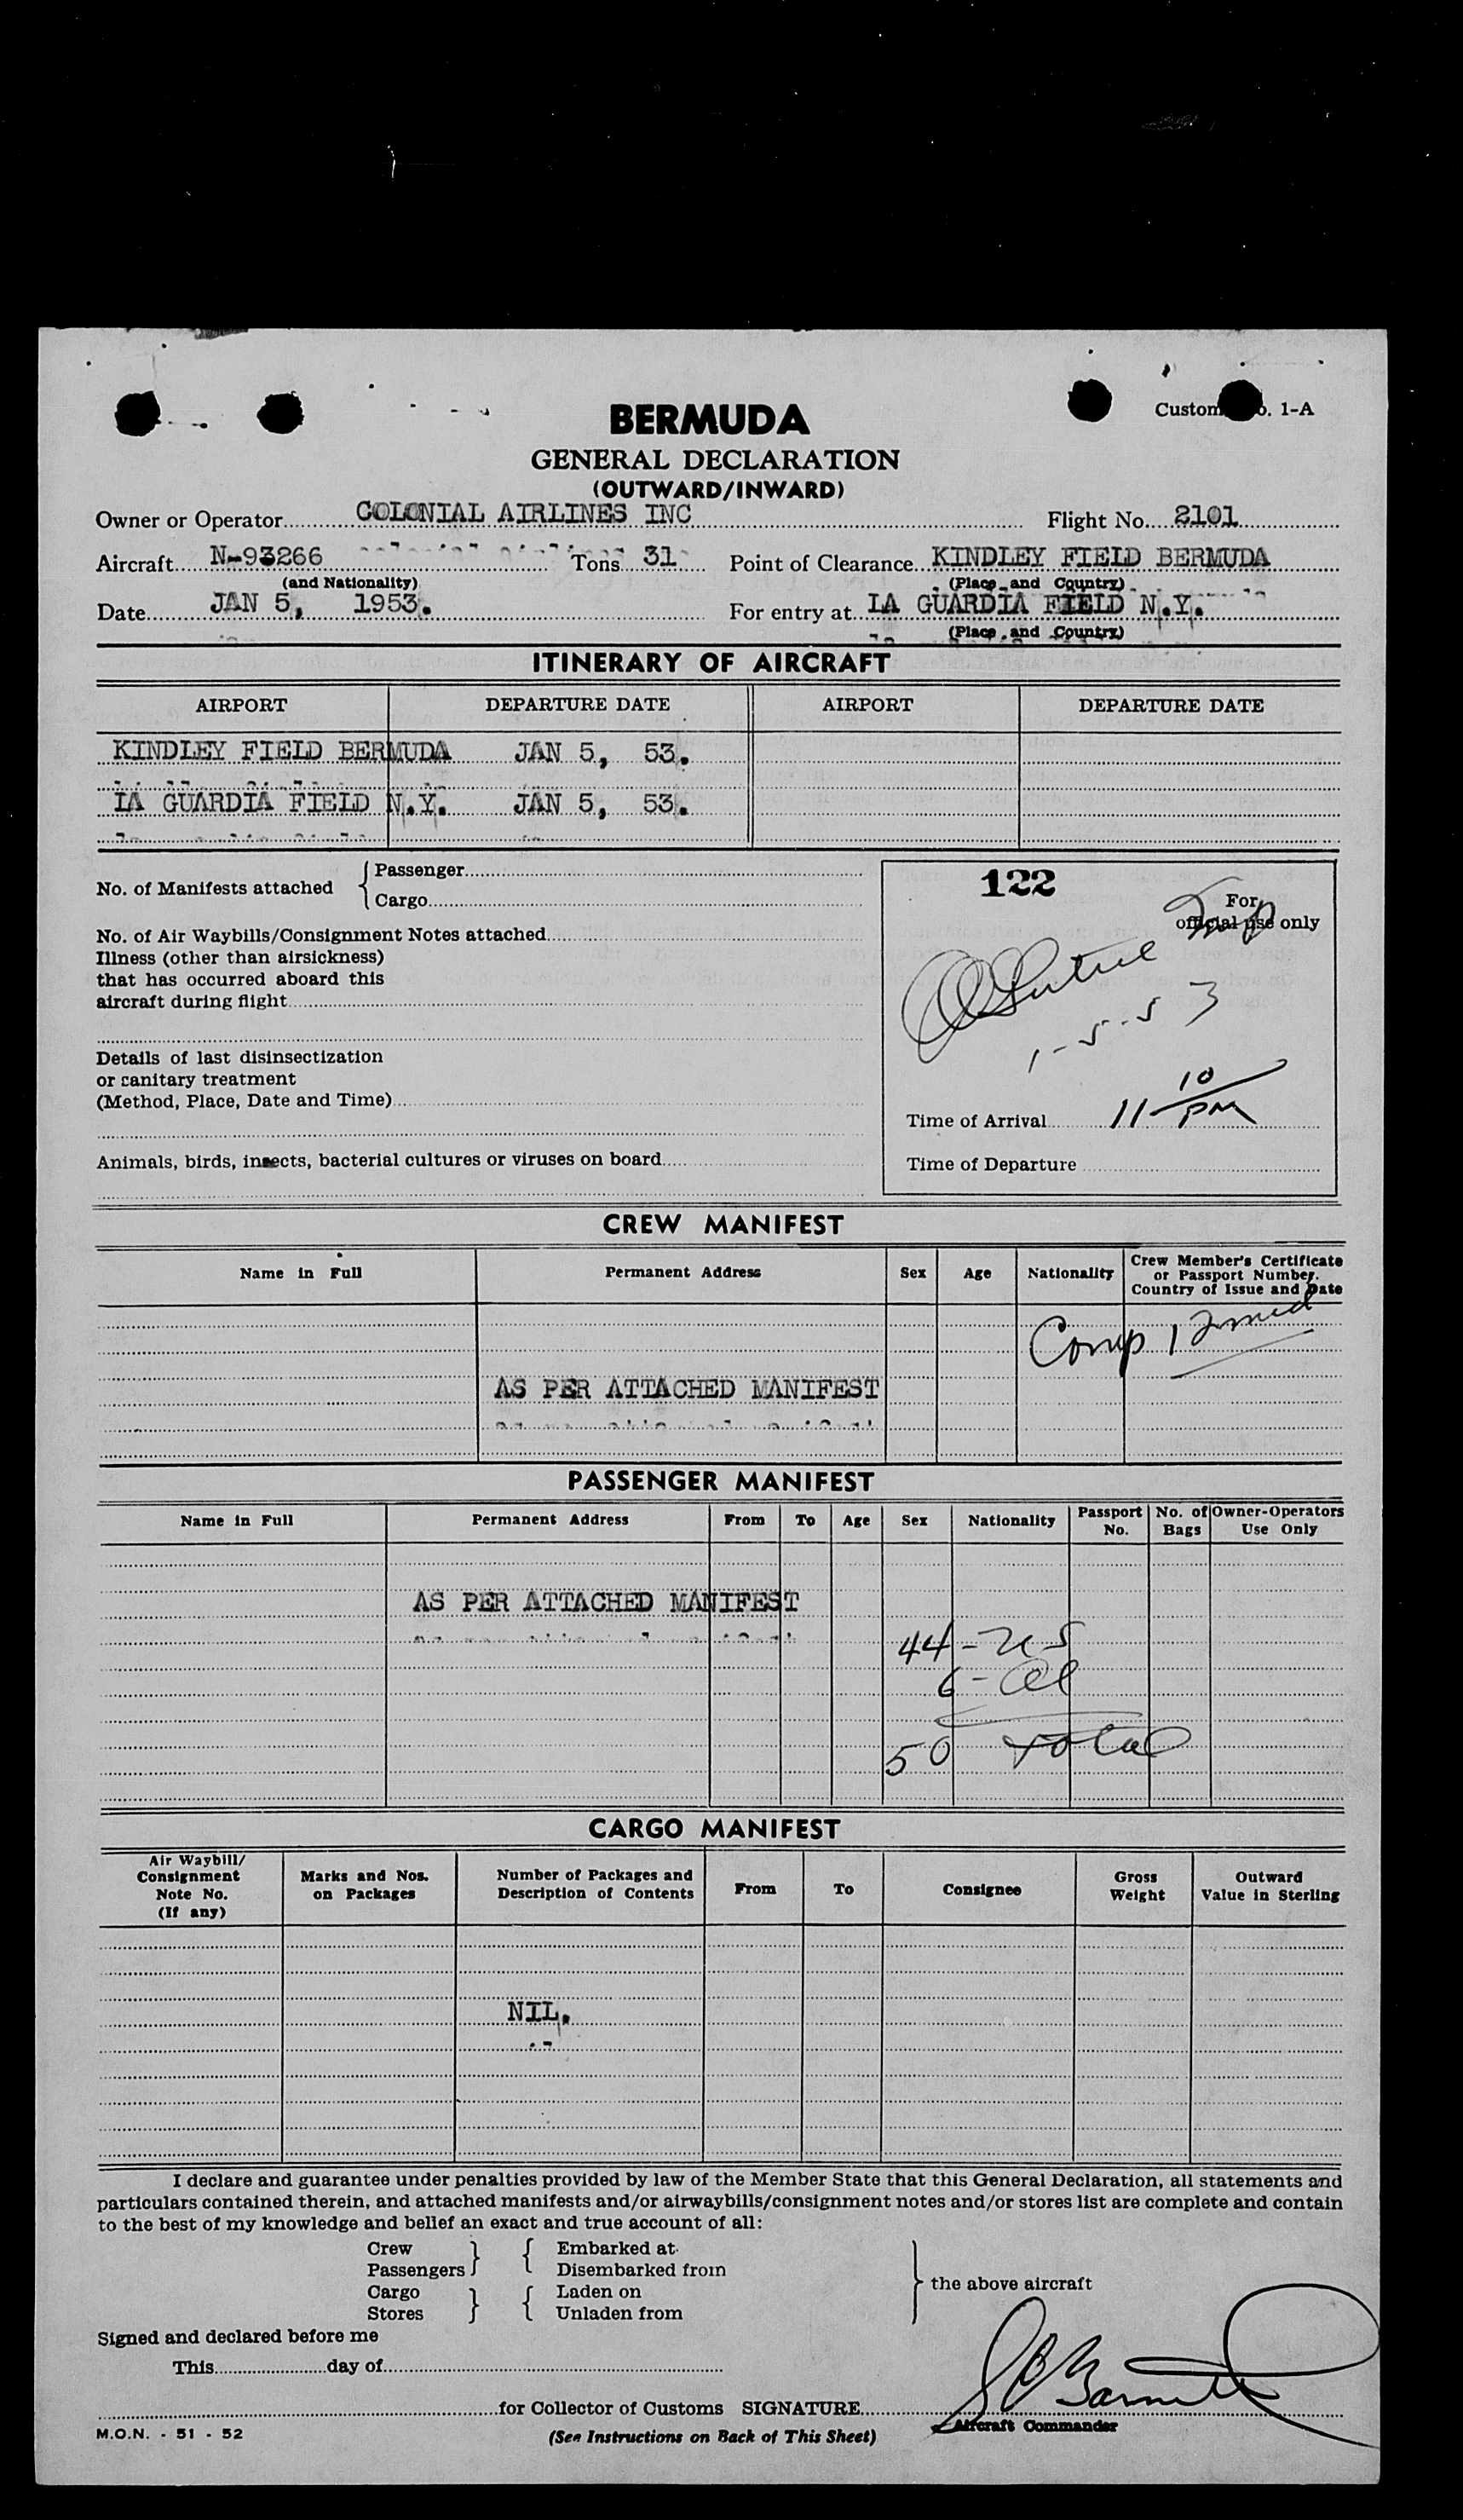 Custom o. 1-A
BERMUDA
GENERAL DECLARATION
(OUTWARD/INWARD)
Owner or Operator COLONIAL AIRLINES INC Flight No. 2101
Aircraft N-93266 Tons 31 Point of Clearance KINDLEY FIELD BERMUDA
(and Nationality) (Place and Country)
Date JAN 5, 1953. For entry at LA GUARDIA FIELD N.Y.
(Place and Country)
ITINERARY OF AIRCRAFT
AIRPORT DEPARTURE DATE AIRPORT DEPARTURE DATE
KINDLEY FIELD BERMUDA JAN 5, 53.
LA GUARDIA FIELD N.Y. JAN 5, 53.
No. of Manifests attached { Passenger
Cargo
No. of Air Waybills/Consignment Notes attached
Illness (other than airsickness)
that has occurred aboard this
aircraft during flight
Details of last disinsectization
or sanitary treatment
(Method, Place, Date and Time)
Animals, birds, insects, bacterial cultures or viruses on board
122
For
official use only
1-5-53
Time of Arrival 11 10 PM
Time of Departure
CREW MANIFEST
Name in Full Permanent Address Sex Age Nationality Crew Member's Certificate
or Passport Number.
Country of Issue and Date
Comp 1
AS PER ATTACHED MANIFEST
PASSENGER MANIFEST
Name in Full Permanent Address From To Age Sex Nationality Passport No. No. of Bags Owner-Operators Use Only
AS PER ATTACHED MANIFEST
44 - US
6 - al
50 Total
CARGO MANIFEST
Air Waybill/ Consignment Note No. (If any) Marks and Nos. on Packages Number of Packages and Description of Contents From To Consignee Gross Weight Outward Value in Sterling
NIL.
I declare and guarantee under penalties provided by law of the Member State that this General Declaration, all statements and
particulars contained therein, and attached manifests and/or airwaybills/consignment notes and/or stores list are complete and contain
to the best of my knowledge and belief an exact and true account of all:
Crew } { Embarked at
Passengers Disembarked from
Cargo } { Laden on } the above aircraft
Stores Unladen from
Signed and declared before me
This day of
for Collector of Customs SIGNATURE
Aircraft Commander
M.O.N. - 51 - 52
(See Instructions on Back of This Sheet)